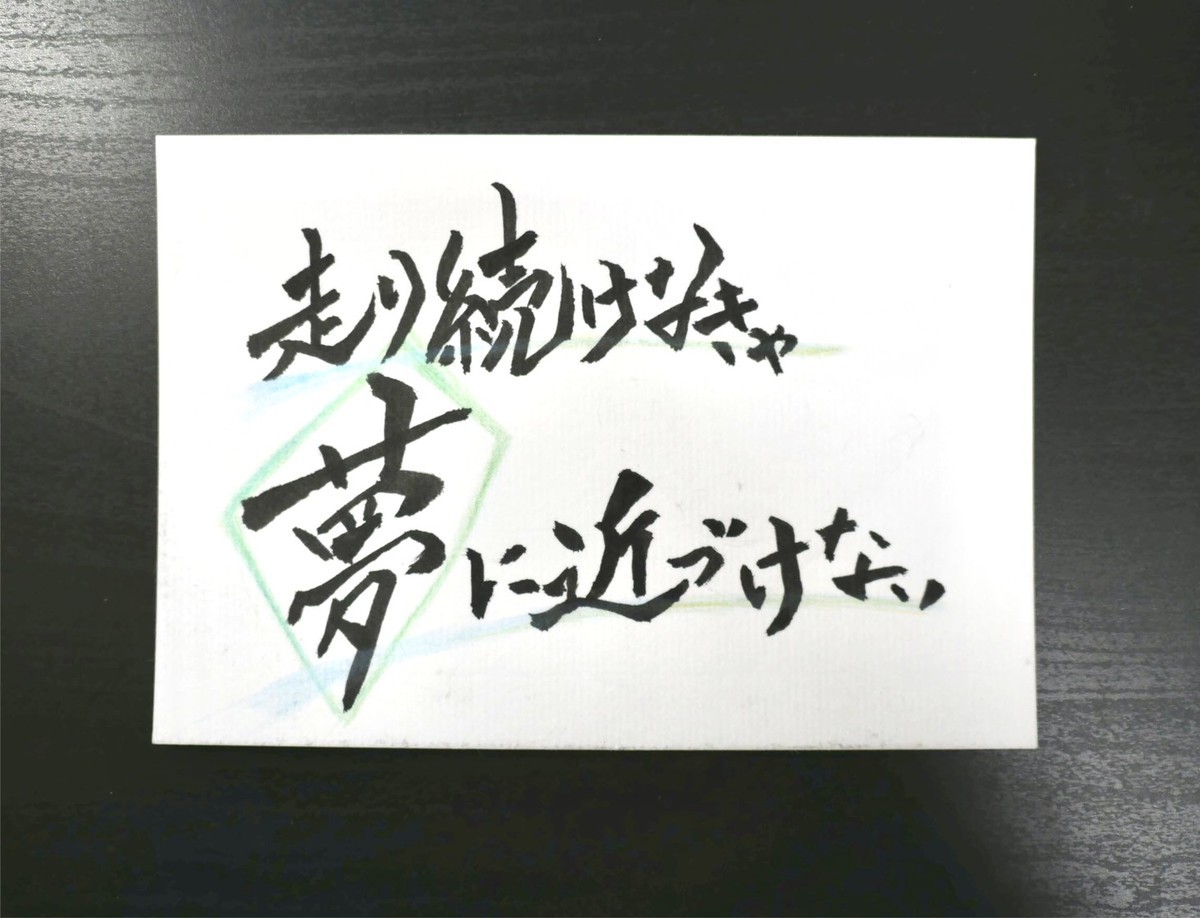 走り続けなきゃ
夢に近づけない